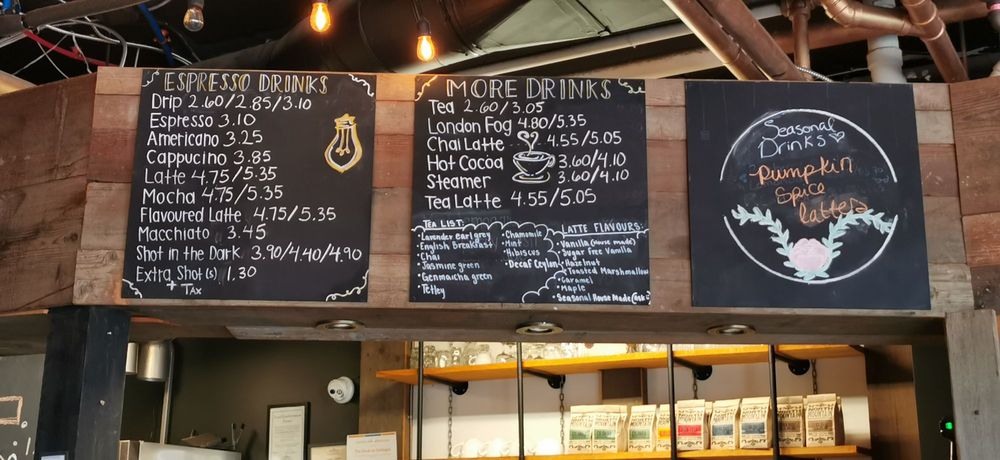 ESPRESSO DRINKS
Drip 2.60/2.85/3.10
Espresso 3.10
Americano 3.25
Cappucino 3.85
Latte 4.75/5.35
Mocha 4.75/5.35
Flavoured Latte 4.75/5.35
Macchiato 3.45
Shot in the Dark 3.90/4.40/4.90
Extra Shot(s) 1.30
+ TAX
MORE DRINKS
Tea 2.60/3.05
London Fog 4.80/5.35
Chai Latte 4.55/5.05
Hot Cocoa 3.60/4.10
Steamer 3.60/4.10
Tea Latte 4.55/5.05
TEA LIST:
• Lavender earl grey
• English Breakfast
• Chai
• Jasmine green
• Genmaicha green
• Tetley
• Chamomile
• Mint
• Hibiscus
• Decaf Ceylon
LATTE FLAVOURS:
• Vanilla (House made)
• Sugar Free Vanilla
• Hazelnut
• Toasted Marshmallow
• Caramel
• Maple
• Seasonal House Made (ask)
Seasonal
Drinks
Pumpkin
Spice
latte